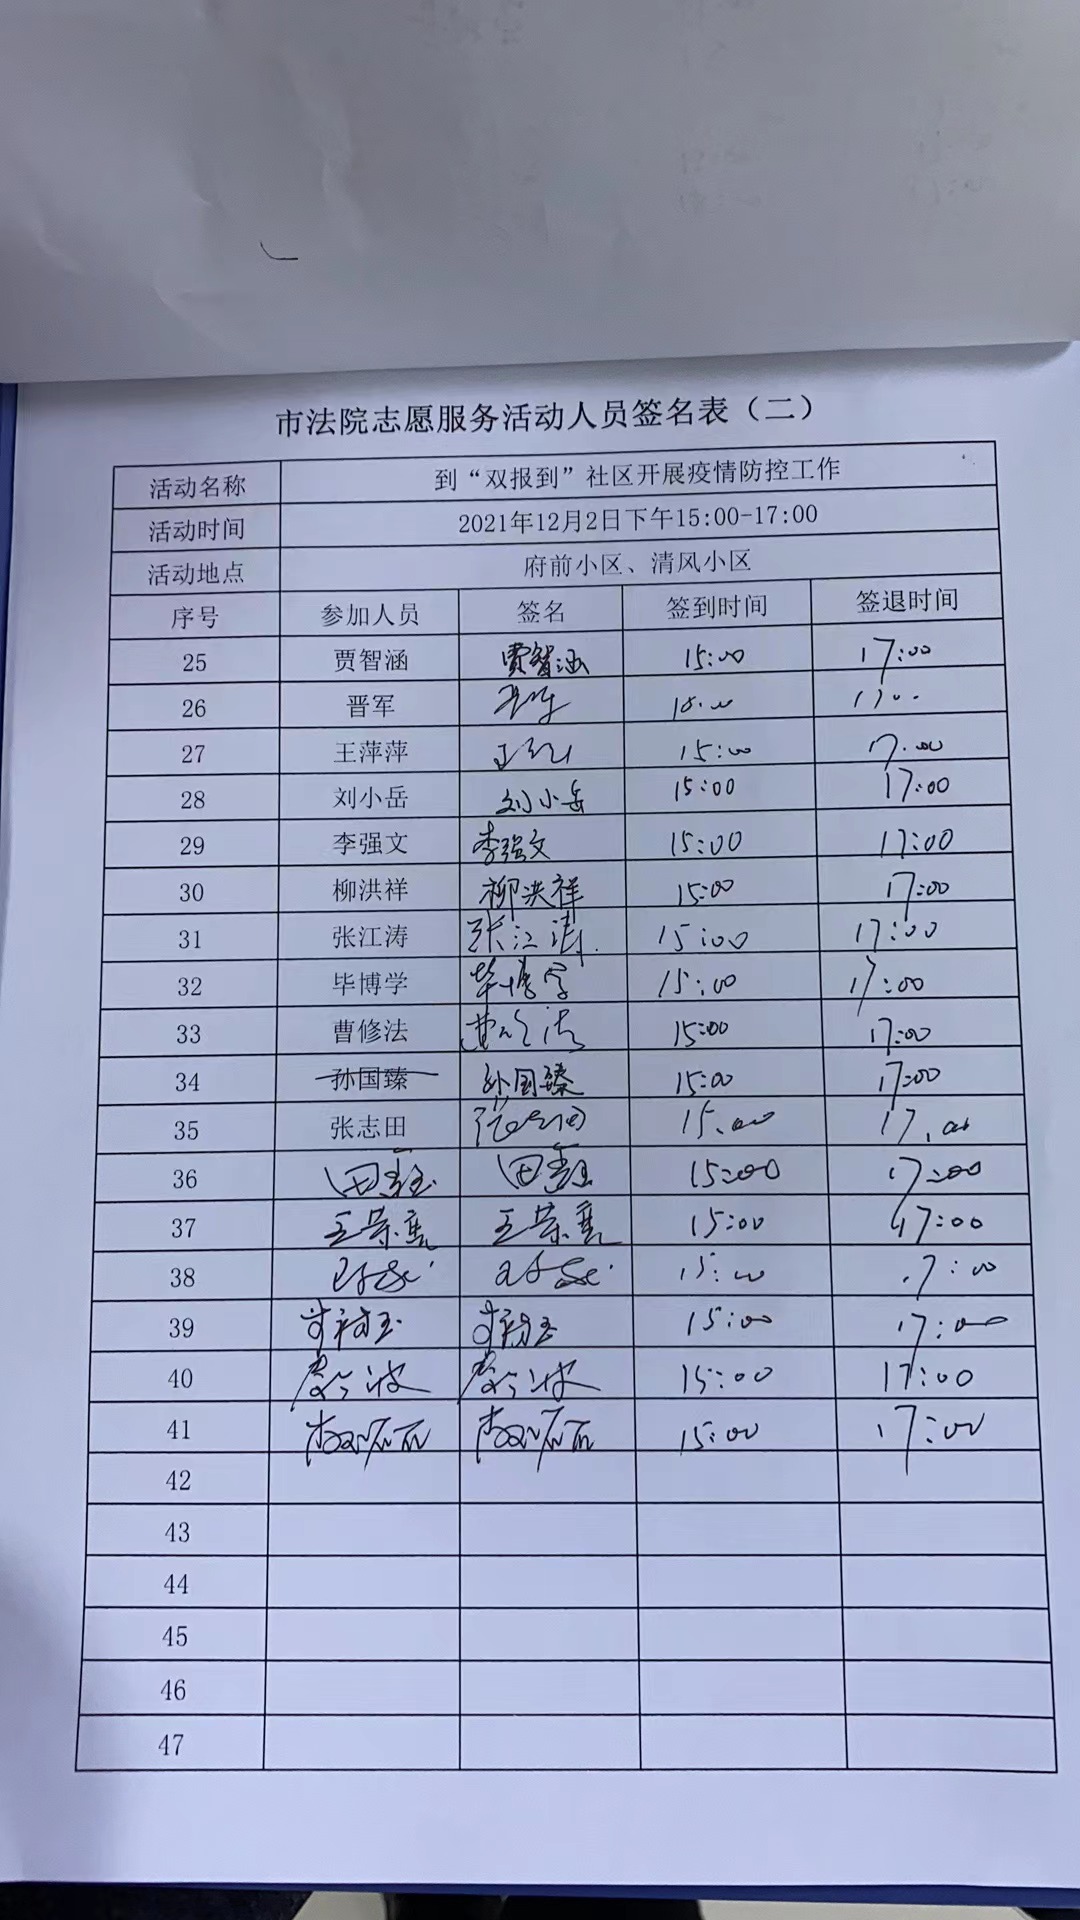 市法院志愿服务活动人员签名表（二）
活动名称 到“双报到”社区开展疫情防控工作
活动时间 2021年12月2日下午15:00-17:00
活动地点 府前小区、清风小区
序号 参加人员 签名 签到时间 签退时间
25 贾智涵 贾智涵 15:00 17:00
26 晋军
27 王萍萍 15:00 17:00
28 刘小岳 刘小岳 15:00 17:00
29 李强文 李强文 15:00 17:00
30 柳洪祥 柳洪祥 15:00 17:00
31 张江涛 张江涛 15:00 17:00
32 毕博学 毕博学 15:00 17:00
33 曹修法 15:00 17:00
34 孙国臻 孙国臻 15:00 17:00
35 张志田 15.00 17.00
36 15:00 17:00
37 15:00 17:00
38 15:00 17:00
39 15:00 17:00
40 15:00 17:00
41 15:00 17:00
42
43
44
45
46
47